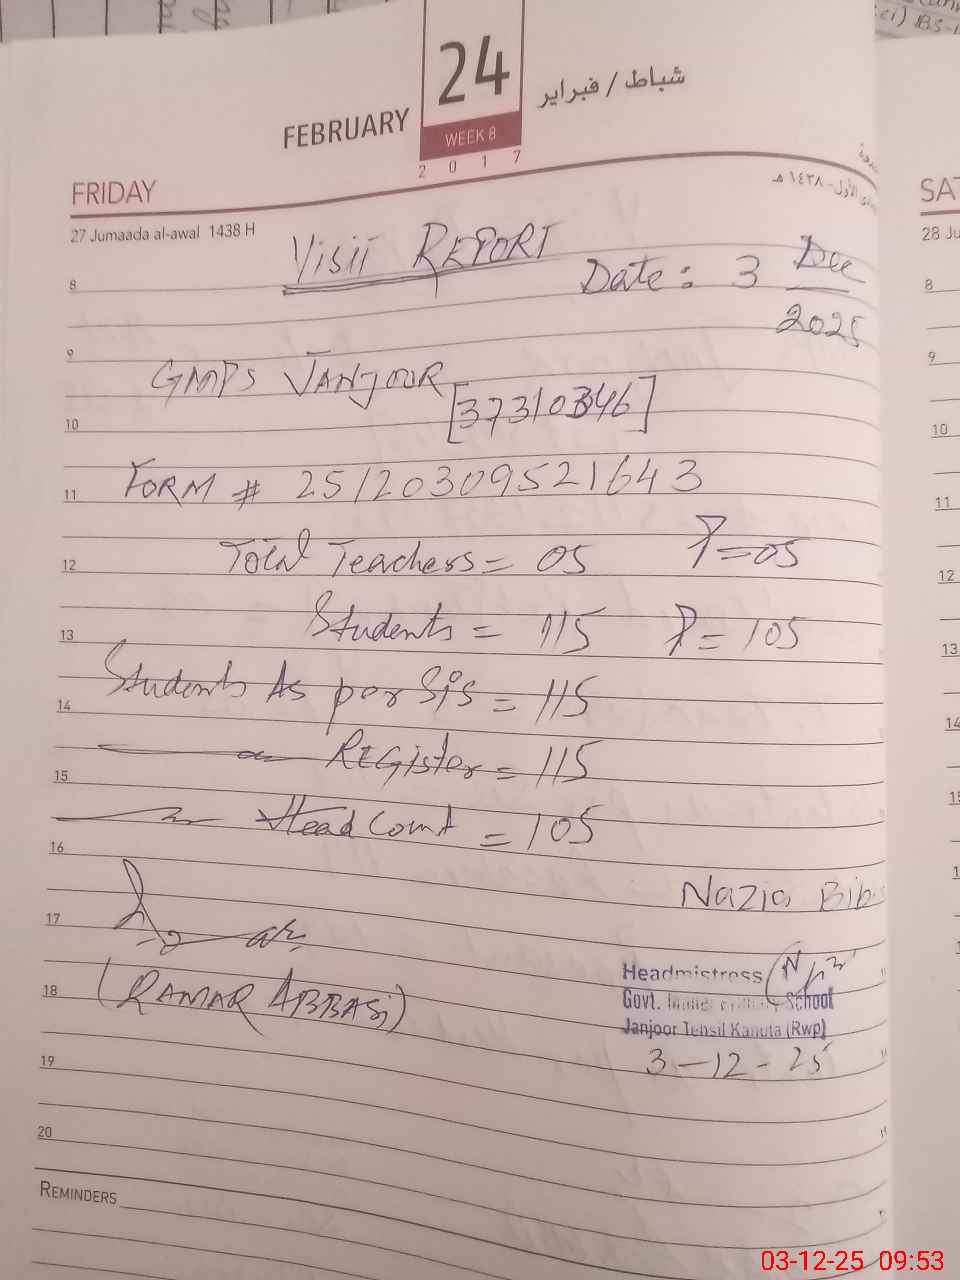 24
FEBRUARY
شباط / فبراير
WEEK 8
2 0 1 7
FRIDAY
SAT
27 Jumaada al-awal 1438 H
١٤٣٨ هـ
28 Ju
VISIT REPORT
Date: 3 Dec
2025
8
8
9
9
GMPS JANJOOR
[37310346]
10
10
FORM # 25120309521643
11
11
Total Teachers = 05 P=05
12
12
Students = 115 P= 105
13
13
Students As per SiS = 115
14
14
REGister = 115
15
Head Count = 105
16
Nazia Bibi
17
Headmistress
(RAMAR ABBASi)
18
Govt. School
Janjoor Tehsil Kahuta (Rwp)
3-12-25
19
20
REMINDERS
03-12-25 09:53